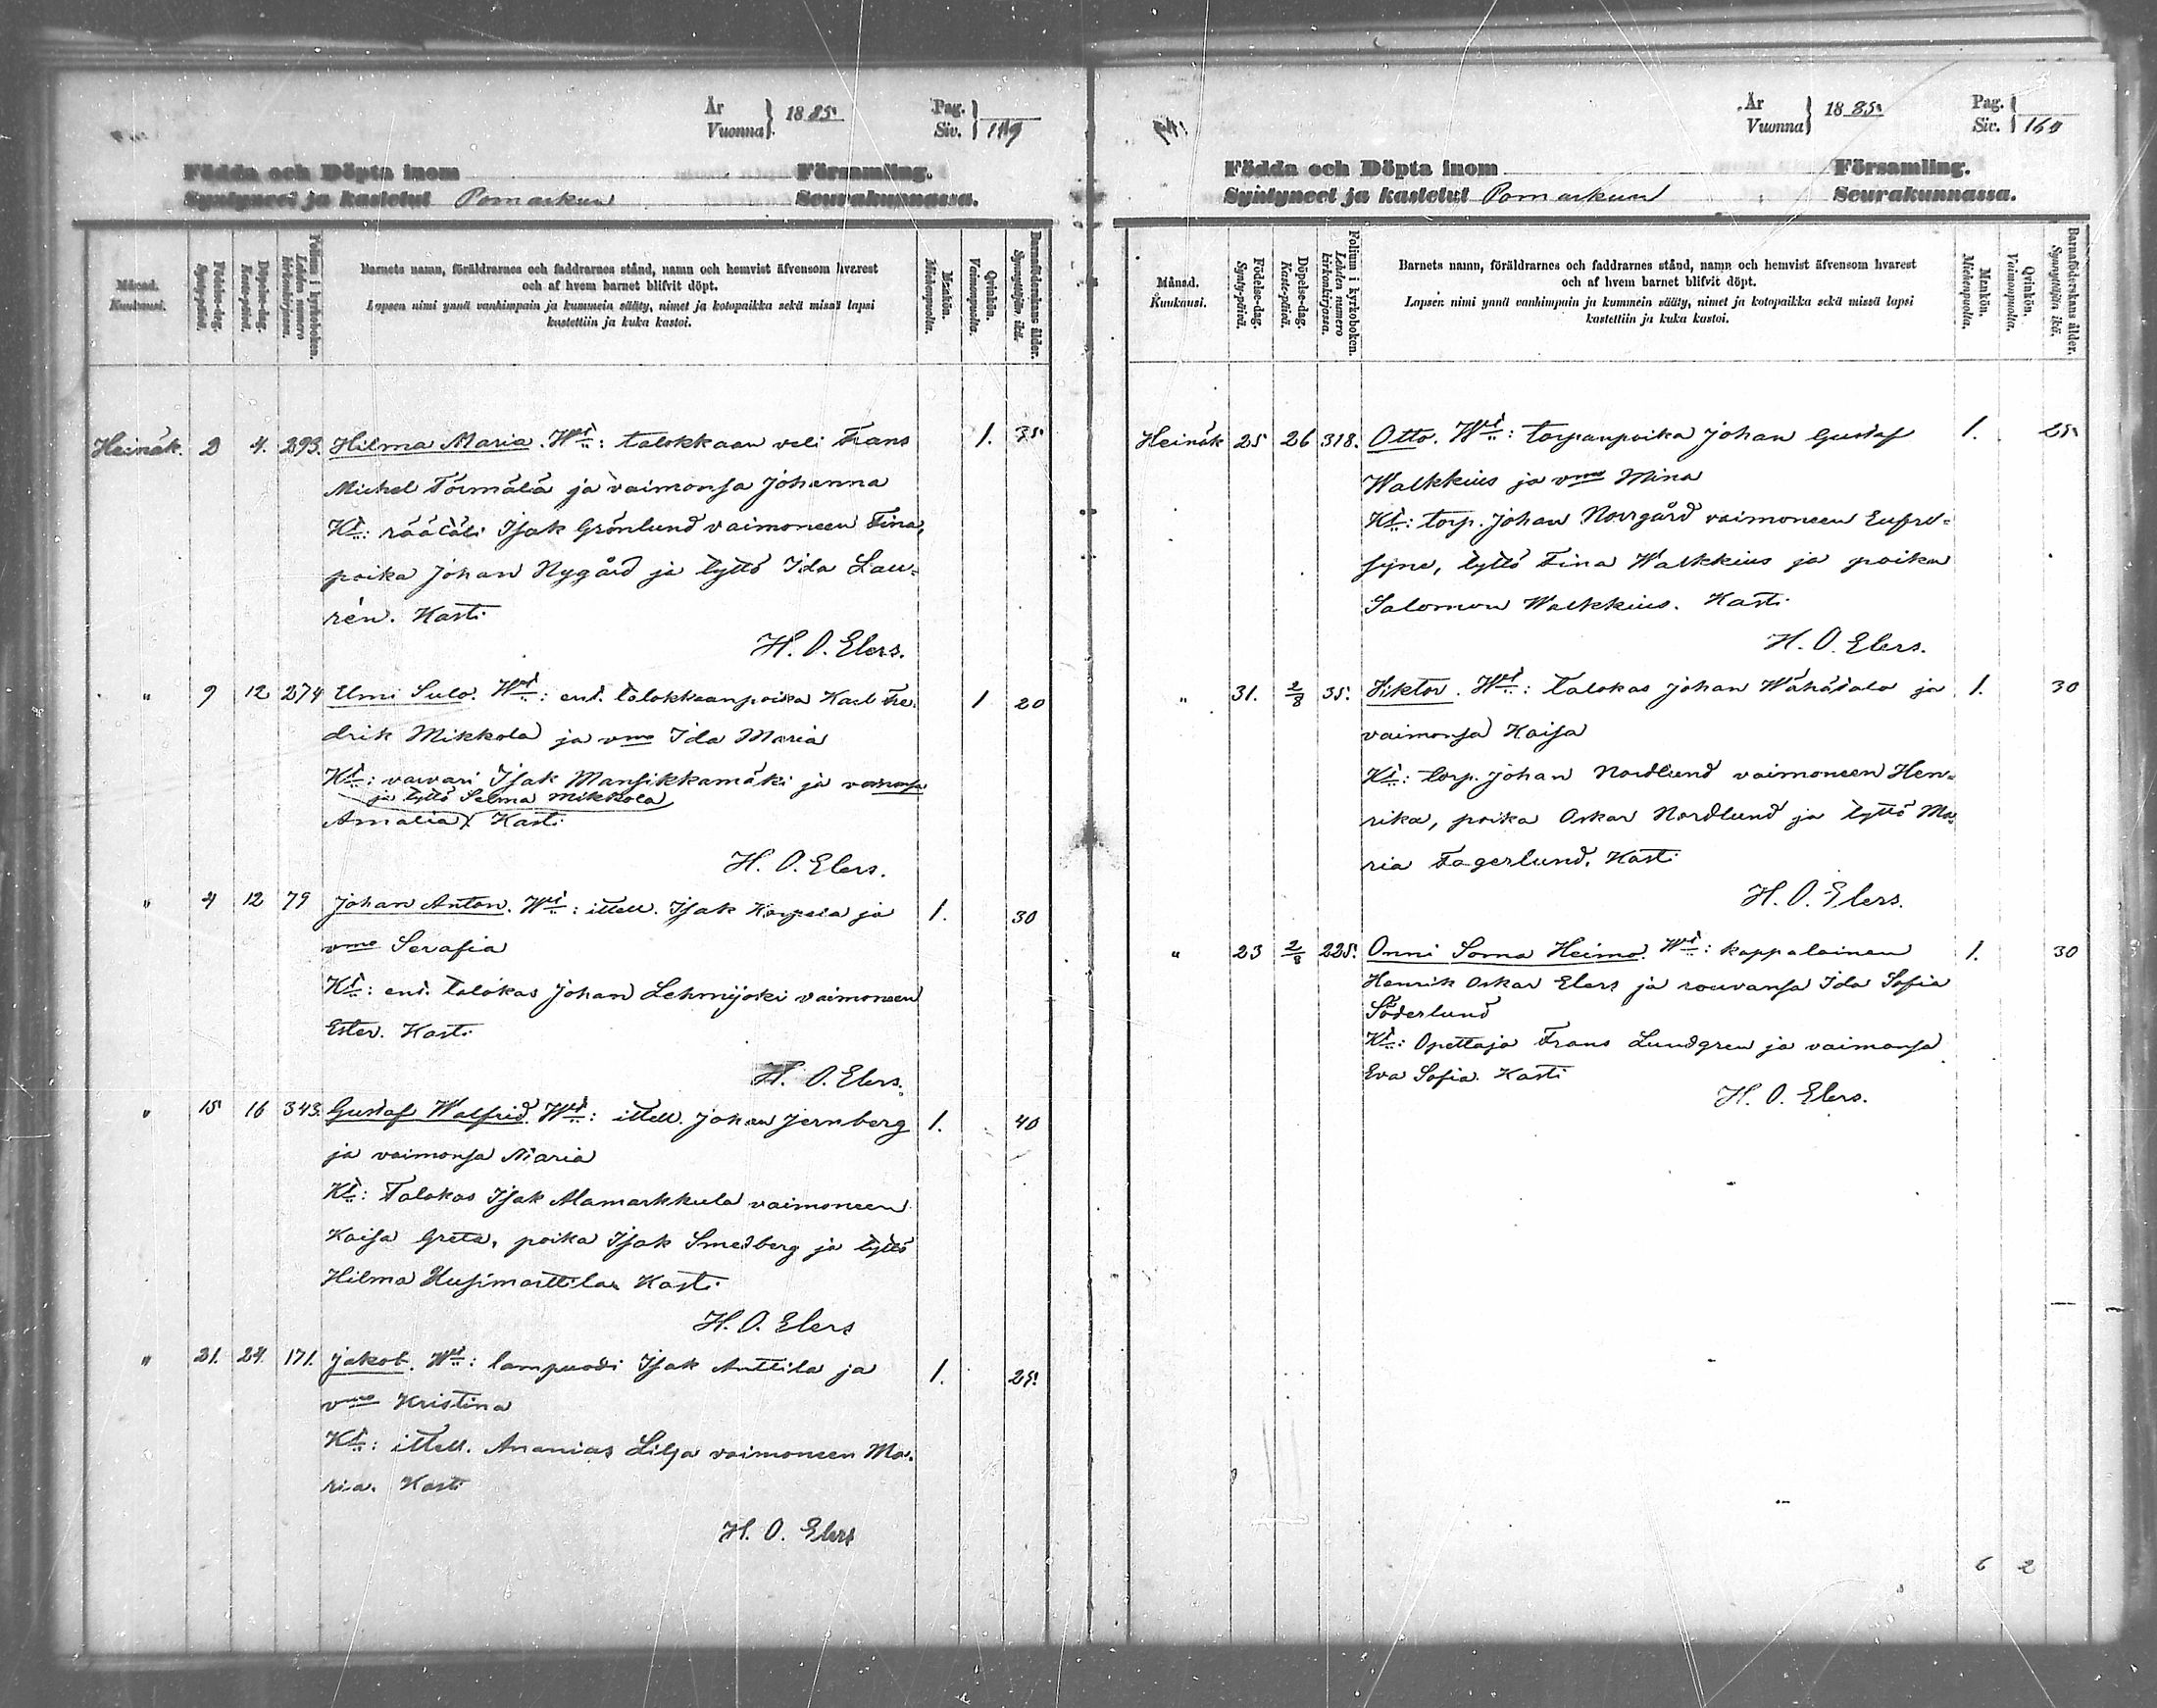 År
Vuonna } 1885.
Pag.
Siv. } 119
Födda och Döpta inom Församling.
Syntyneet ja kastetut Pomarkun Seurakunnassa.
Månad.
Kuukausi.
Födelse-dag.
Synty-päivä.
Döpelse-dag.
Kaste-päivä.
Folium i kyrkoboken.
Lehden numero kirkonkirjassa.
Barnets namn, föräldrarnes och faddrarnes stånd, namn och hemvist äfvensom hvarest
och af hvem barnet blifvit döpt.
Lapsen nimi ynnä vanhimpain ja kummein sääty, nimet ja kotopaikka sekä missä lapsi
kastettiin ja kuka kastoi.
Mankön.
Miehenpuolta.
Qvinkön.
Vaimonpuolta.
Barnaföderskans ålder.
Synnyttäjän ikä.
Heinäk. 2 4. 293. Hilma Maria. Wt: talokkaan veli Frans 1. 35
Michel Törmälä ja vaimonsa Johanna
Kt: räätäli Isak Grönlund vaimoneen Fina,
poika Johan Nygård ja tyttö Ida Lau-
rén. Kasti
H. O. Elers.
" 9 12 274 Umi Sulo. Wt: ent. talokkaanpoika Karl Fre- 1 20
drik Mikkola ja vmo Ida Maria
Kt: varvari Isak Mansikkamäki ja vaimonsa
ja tyttö Selma Mikkola
Amalia. Kasti
H. O. Elers.
" 4 12 79 Johan Anton. Wt: ittell. Isak Korpela ja 1. 30
vmo Serafia
Kt: ent. talokas Johan Lehmijoki vaimoneen
Ester. Kasti
H. O. Elers.
" 15 16 343. Gustaf Walfrid. Wt: ittell. Johan Jernberg 1. 40
ja vaimonsa Maria
Kt: Talokas Isak Alamarkkula vaimoneen
Kaisa Greta, poika Isak Smedberg ja tyttö
Hilma Uusimarttila. Kasti
H. O. Elers
" 21. 24. 171. Jakob. Wt: lampuodi Isak Anttila ja 1. 25.
vmo Kristina
Kt: ittell. Ananias Lilja vaimoneen Ma-
ria. Kasti
H. O. Elers
År
Vuonna } 1885.
Pag.
Siv. } 160
Födda och Döpta inom Församling.
Syntyneet ja kastetut Pomarkun Seurakunnassa.
Månad.
Kuukausi.
Födelse-dag.
Synty-päivä.
Döpelse-dag.
Kaste-päivä.
Folium i kyrkoboken.
Lehden numero kirkonkirjassa.
Barnets namn, föräldrarnes och faddrarnes stånd, namn och hemvist äfvensom hvarest
och af hvem barnet blifvit döpt.
Lapsen nimi ynnä vanhimpain ja kummein sääty, nimet ja kotopaikka sekä missä lapsi
kastettiin ja kuka kastoi.
Mankön.
Miehenpuolta.
Qvinkön.
Vaimonpuolta.
Barnaföderskans ålder.
Synnyttäjän ikä.
Heinäk 25 26 318. Otto. Wt: torpanpoika Johan Gustaf 1. 25
Walkkius ja vmo Mina
Kt: torp. Johan Norrgård vaimoneen Eufro-
syne, tyttö Fina Walkkius ja poika
Salomon Walkkius. Kasti
H. O. Elers.
" 31. 2/8 35. Hiktor. Wt: Talokas Johan Wähätalo ja 1. 30
vaimonsa Kaisa
Kt: torp. Johan Nordlund vaimoneen Hen-
rika, poika Oskar Nordlund ja tyttö Ma-
ria Fagerlund. Kasti
H. O. Elers.
" 23 2/8 225. Onni Sorma Heimo. Wt: kappalainen 1. 30
Henrik Oskar Elers ja rouvansa Ida Sofia
Söderlund
Kt: Opettaja Frans Lundgren ja vaimonsa
Eva Sofia. Kasti
H. O. Elers.
6 2